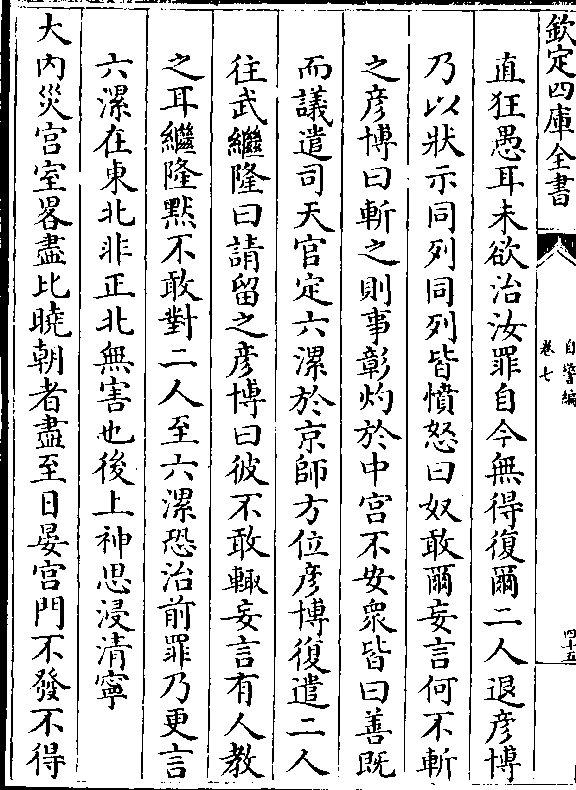 欽定四庫全書
自警編
卷七
四十五
直狂愚耳未欲治汝罪自今無得復爾二人退彦博
乃以狀示同列同列皆憤怒曰奴敢爾妄言何不斬
之彦博曰斬之則事彰灼於中宮不安衆皆曰善既
而議遣司天官定六漯於京師方位彦博復遣二人
往武繼隆曰請留之彦博曰彼不敢輙妄言有人教
之耳繼隆黙不敢對二人至六漯恐治前罪乃更言
六漯在東北非正北無害也後上神思浸清寧
大内災宫室畧盡比曉朝者盡至日晏宫門不發不得